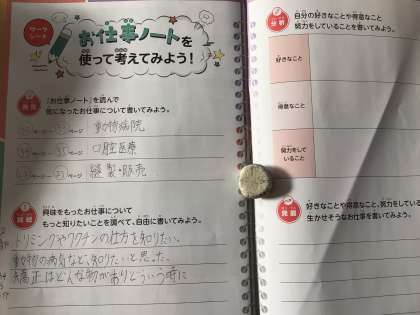 ワークシート
お仕事ノートを
使って考えてみよう!
「お仕事ノート」を読んで
気になったお仕事について書いてみよう。
動物病院
口腔医療
縫製・販売
興味をもったお仕事について
もっと知りたいことを調べて、自由に書いてみよう。
トリミングやワクチンの仕方を知りたい。
動物の病気など、知りたいと思った。
矯正はどんな物がありどういう時に
分析
自分の好きなことや得意なこと
努力をしていることを書いてみよう。
好きなこと
得意なこと
努力をして
いること
発展
好きなことや得意なこと、努力をしてい
生かせそうなお仕事を書いてみよう。